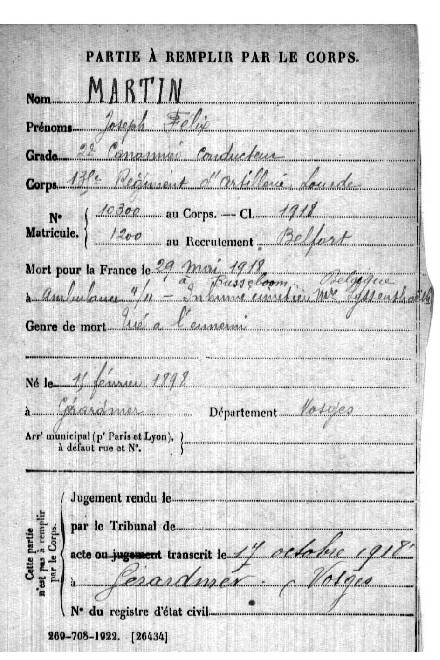 PARTIE À REMPLIR PAR LE CORPS.
Nom MARTIN
Prénoms Joseph Félix
Grade 2e Canonnier conducteur
Corps Régiment d'artillerie Lourde
10300 au Corps. — Cl. 1918
N° Matricule.
1200 au Recrutement Belfort
Mort pour la France le 29 mai 1918
à Busseboom Belgique
à Ambulance 4/11 - Inhumé cimetière
Genre de mort Tué à l'ennemi
Né le 15 février 1898
à Gérardmer Département Vosges
Arrt municipal (pr Paris et Lyon),
à défaut rue et N°.
Jugement rendu le
par le Tribunal de
acte ou jugement transcrit le 17 octobre 1918
à Gérardmer. (Vosges
N° du registre d'état civil
Cette partie
n'est pas à remplir
par le Corps.
269-708-1922. [26434]